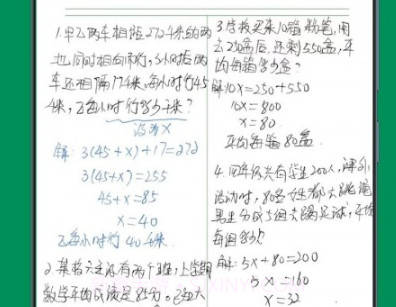 1.甲乙两车相距272千米的两
地同时相向而行,3小时后两
车还相隔17千米,每小时行45
千米,乙每小时行多少千米?
设为X
解:3(45+x)+17=272
3(45+x)=255
45+x=85
x=40
乙每小时行40千米
3.学校买来10箱粉笔,用
去250盒后,还剩550盒,平
均每箱多少盒?
解10x=250+550
10x=800
x=80
平均每箱80盒
4.四年级共有学生200人,课外
活动时,80名女生都去跳绳
男生分成5组去踢足球,平均
每组多少?
解:5x+80=200
5x=160
x=32